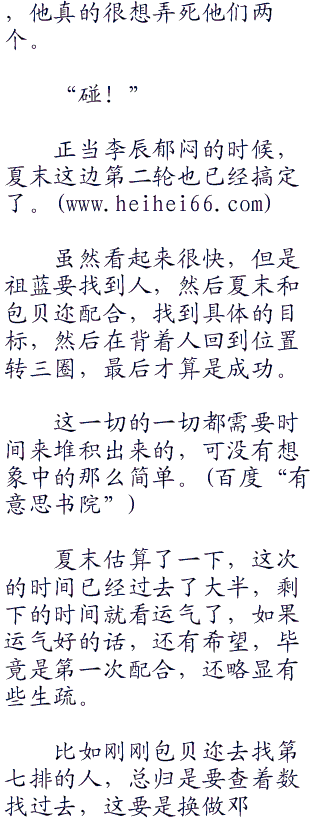 ，他真的很想弄死他们两
个。
“碰！”
正当李辰郁闷的时候，
夏末这边第二轮也已经搞定
了。(www.heihei66.com)
虽然看起来很快，但是
祖蓝要找到人，然后夏末和
包贝迩配合，找到具体的目
标，然后在背着人回到位置
转三圈，最后才算是成功。
这一切的一切都需要时
间来堆积出来的，可没有想
象中的那么简单。(百度“有
意思书院”)
夏末估算了一下，这次
的时间已经过去了大半，剩
下的时间就看运气了，如果
运气好的话，还有希望，毕
竟是第一次配合，还略显有
些生疏。
比如刚刚包贝迩去找第
七排的人，总归是要查着数
找过去，这要是换做邓